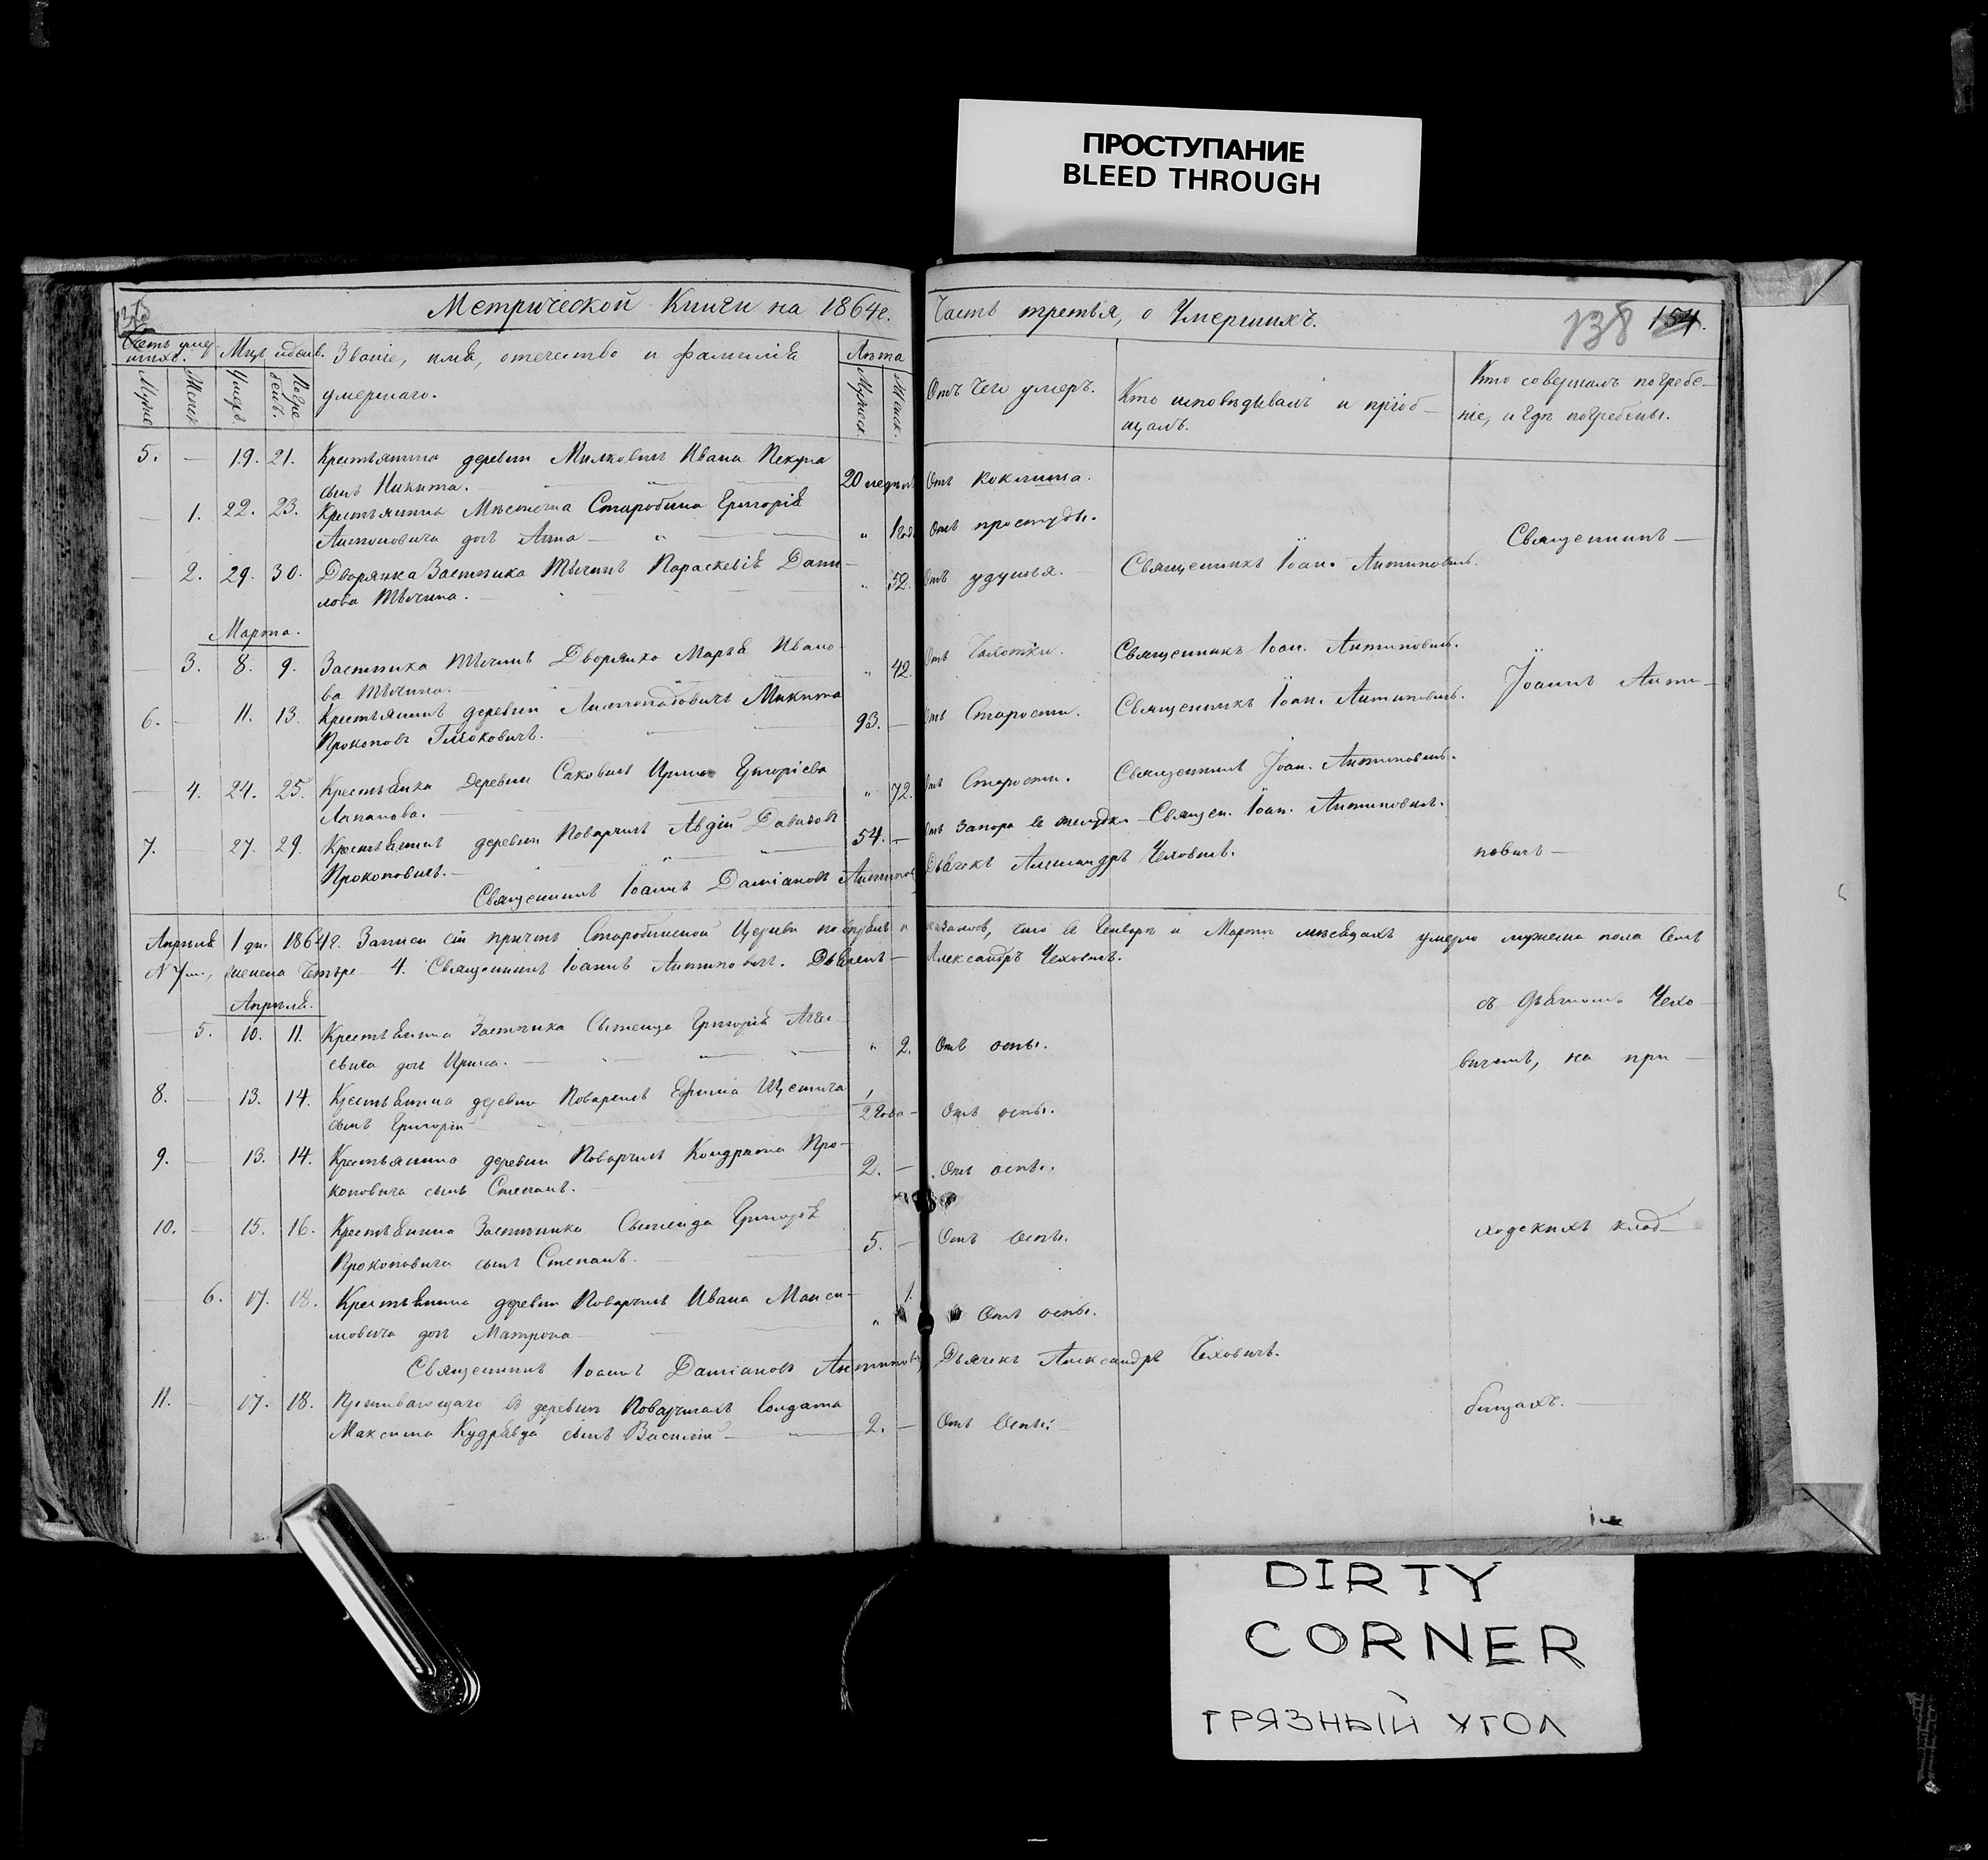 ПРОСТУПАНИЕ
BLEED THROUGH
Метрической Книги на 1864 г. Часть третья, о Умершихъ.
138 154.
Мужс Женск Умеръ. Погребенъ.
Званіе, имя, отечество и фамилія
умершаго.
Лѣта
Мужеск. Женск.
Отъ чего умеръ.
Кто исповѣдывалъ и пріоб-
щалъ.
Кто совершалъ погребе-
ніе, и гдѣ погребены.
5. — 19. 21. Крестьянина деревни Милковичъ Ивана Пекуна
сынъ Никита. — 20 недѣль Отъ коклюша.
— 1. 22. 23. Крестьянина Мѣстечка Старобина Григорія
Антоновича дочь Анна — " 1 год. Отъ простуды.
Священникъ —
— 2. 29. 30. Дворянка Застѣнка Тычинъ Параскевія Дани-
лова Тычина. — " 52. Отъ удушья. Священникъ Іоан. Антиповичъ.
Марта.
— 3. 8. 9. Застѣнка Тычинъ Дворянка Марья Ивано-
ва Тычина. — " 42. Отъ Чахотки. Священникъ Іоан. Антиповичъ.
Іоаннъ Анти-
6. — 11. 13. Крестьянинъ деревни Листопадовичъ Микита
Прокоповъ — 93. — Отъ Старости. Священникъ Іоан. Антиповичъ.
— 4. 24. 25. Крестьянка Деревни Саковичъ Ирина Григоріева
— " 72. Отъ Старости. Священникъ Іоан. Антиповичъ.
7. — 27. 29. Крестьянинъ деревни Поварчичъ Авдій Давидовъ
Прокоповичъ. — 54. — Отъ Запора въ желудке — Священ. Іоан. Антиповичъ.
повичъ —
Священникъ Іоаннъ Даміановъ Антипов Дьячекъ Александръ Чеховичъ.
Апрѣля 1 дн. 1864 г. Записи сіи причтъ Старобинской Церкви повѣрялъ и что въ Генварѣ и Мартѣ мѣсяцахъ умерло мужеска пола Семь
N 7 м., женска Четыре 4. Священникъ Іоаннъ Антиповичъ. Дьячекъ — Александръ Чеховичъ.
Апрѣля.
съ дьячкомъ Чехо-
— 5. 10. 11. Крестьянина Застѣнка Григорія
дочь Ирина. — " 2. Отъ оспы.
вичемъ, на при —
8. — 13. 14. Крестьянина деревни Поварчичъ Ефима
сынъ Григорій — 1/2 года — Отъ оспы.
9. — 13. 14. Крестьянина деревни Поварчичъ Кондрата Про-
коповича сынъ Степанъ. — 2. — Отъ оспы.
10. — 15. 16. Крестьянина Застѣнка Григорія
Прокоповича сынъ Степанъ. — 5. — Отъ Оспы.
ходскихъ клад —
— 6. 17. 18. Крестьянина деревни Поварчичъ Ивана Макси-
мовича дочь Матрона — " 1. Отъ оспы.
Священникъ Іоаннъ Даміановъ Антипови Дьячекъ Александръ Чеховичъ.
11. — 17. 18. Проживающаго въ деревни Поварчичахъ Солдата
Максима Кудрявца сынъ Василій — 2. — Отъ Оспы.
бищахъ. —
DIRTY
CORNER
ГРЯЗНЫЙ УГОЛ